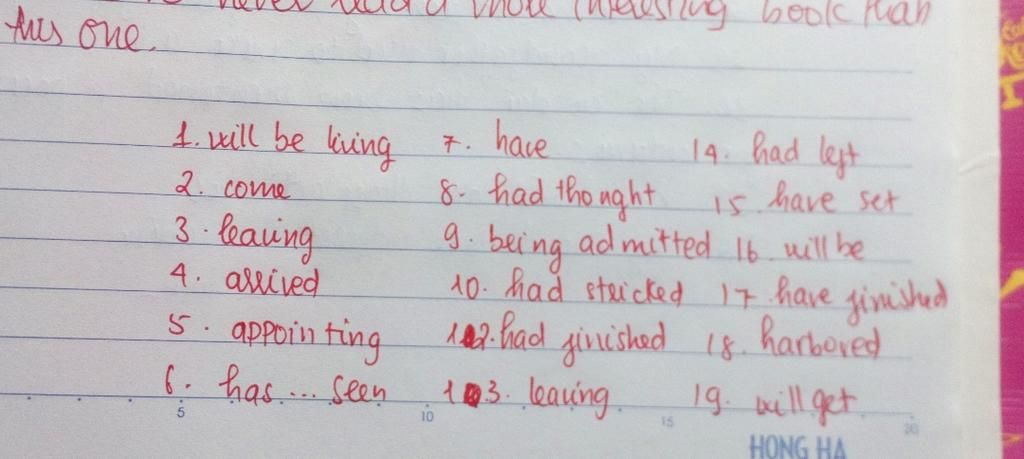 never read a more interesting book than
this one.
1. will be living 7. have 14. had left
2. come 8. had thought 15. have set
3. leaving 9. being admitted 16. will be
4. arrived 10. had stricked 17. have finished
5. appointing 12. had finished 18. harbored
6. has ... seen 13. leaving 19. will get
5 10 15 20
HONG HA